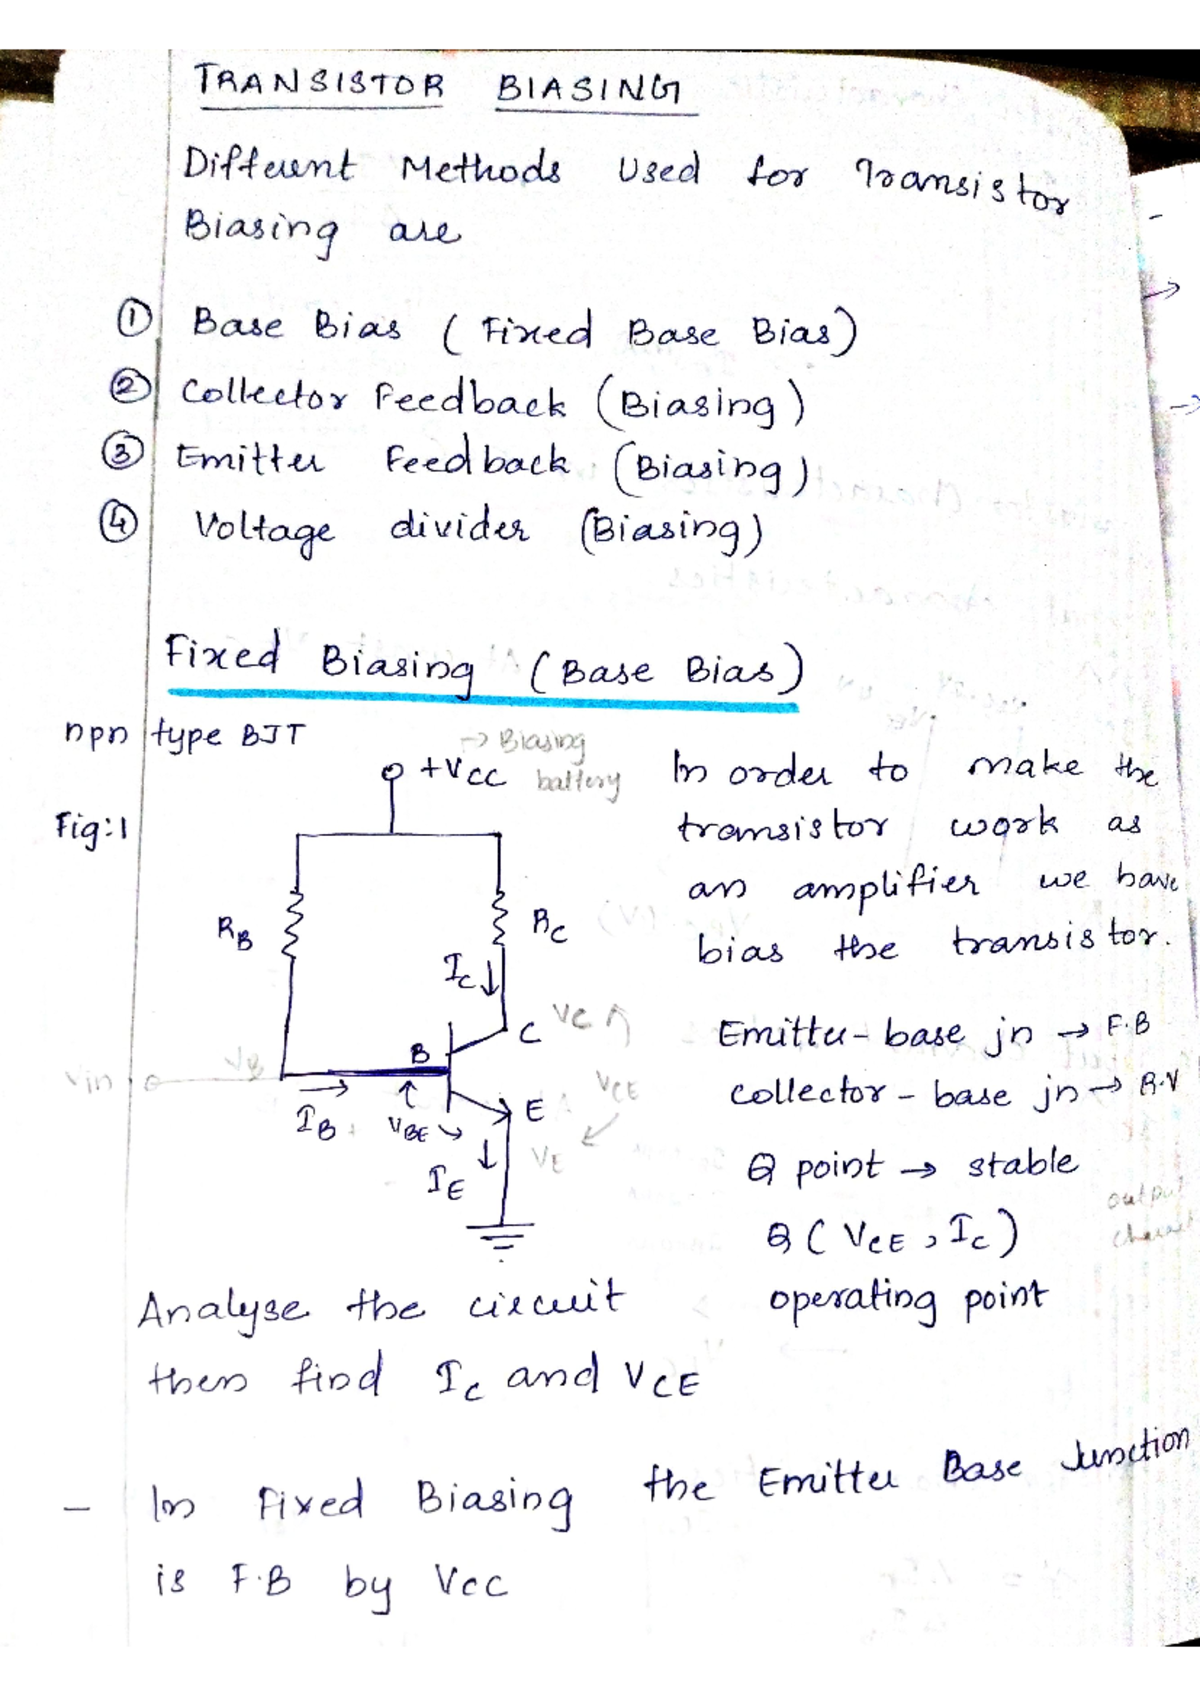 TRANSISTOR BIASING
Different Methods Used for Transistor
Biasing are
① Base Bias ( Fixed Base Bias)
② Collector Feedback (Biasing)
③ Emitter Feedback (Biasing)
④ Voltage divider (Biasing)
Fixed Biasing (Base Bias)
npn type BJT
→ Biasing
+VCC battery
Fig:1
RB
RC
IC ↓
C VC
B
VB
Vin
IB
VBE
E
VCE
VE
IE
In order to make the
transistor work as
an amplifier we have
bias the transistor.
Emitter - base jn → F.B
collector - base jn → R.V
Q point → stable
Q ( VCE , IC )
output
operating point
Analyse the circuit
then find IC and VCE
- In Fixed Biasing the Emitter Base Junction
is F.B by Vcc